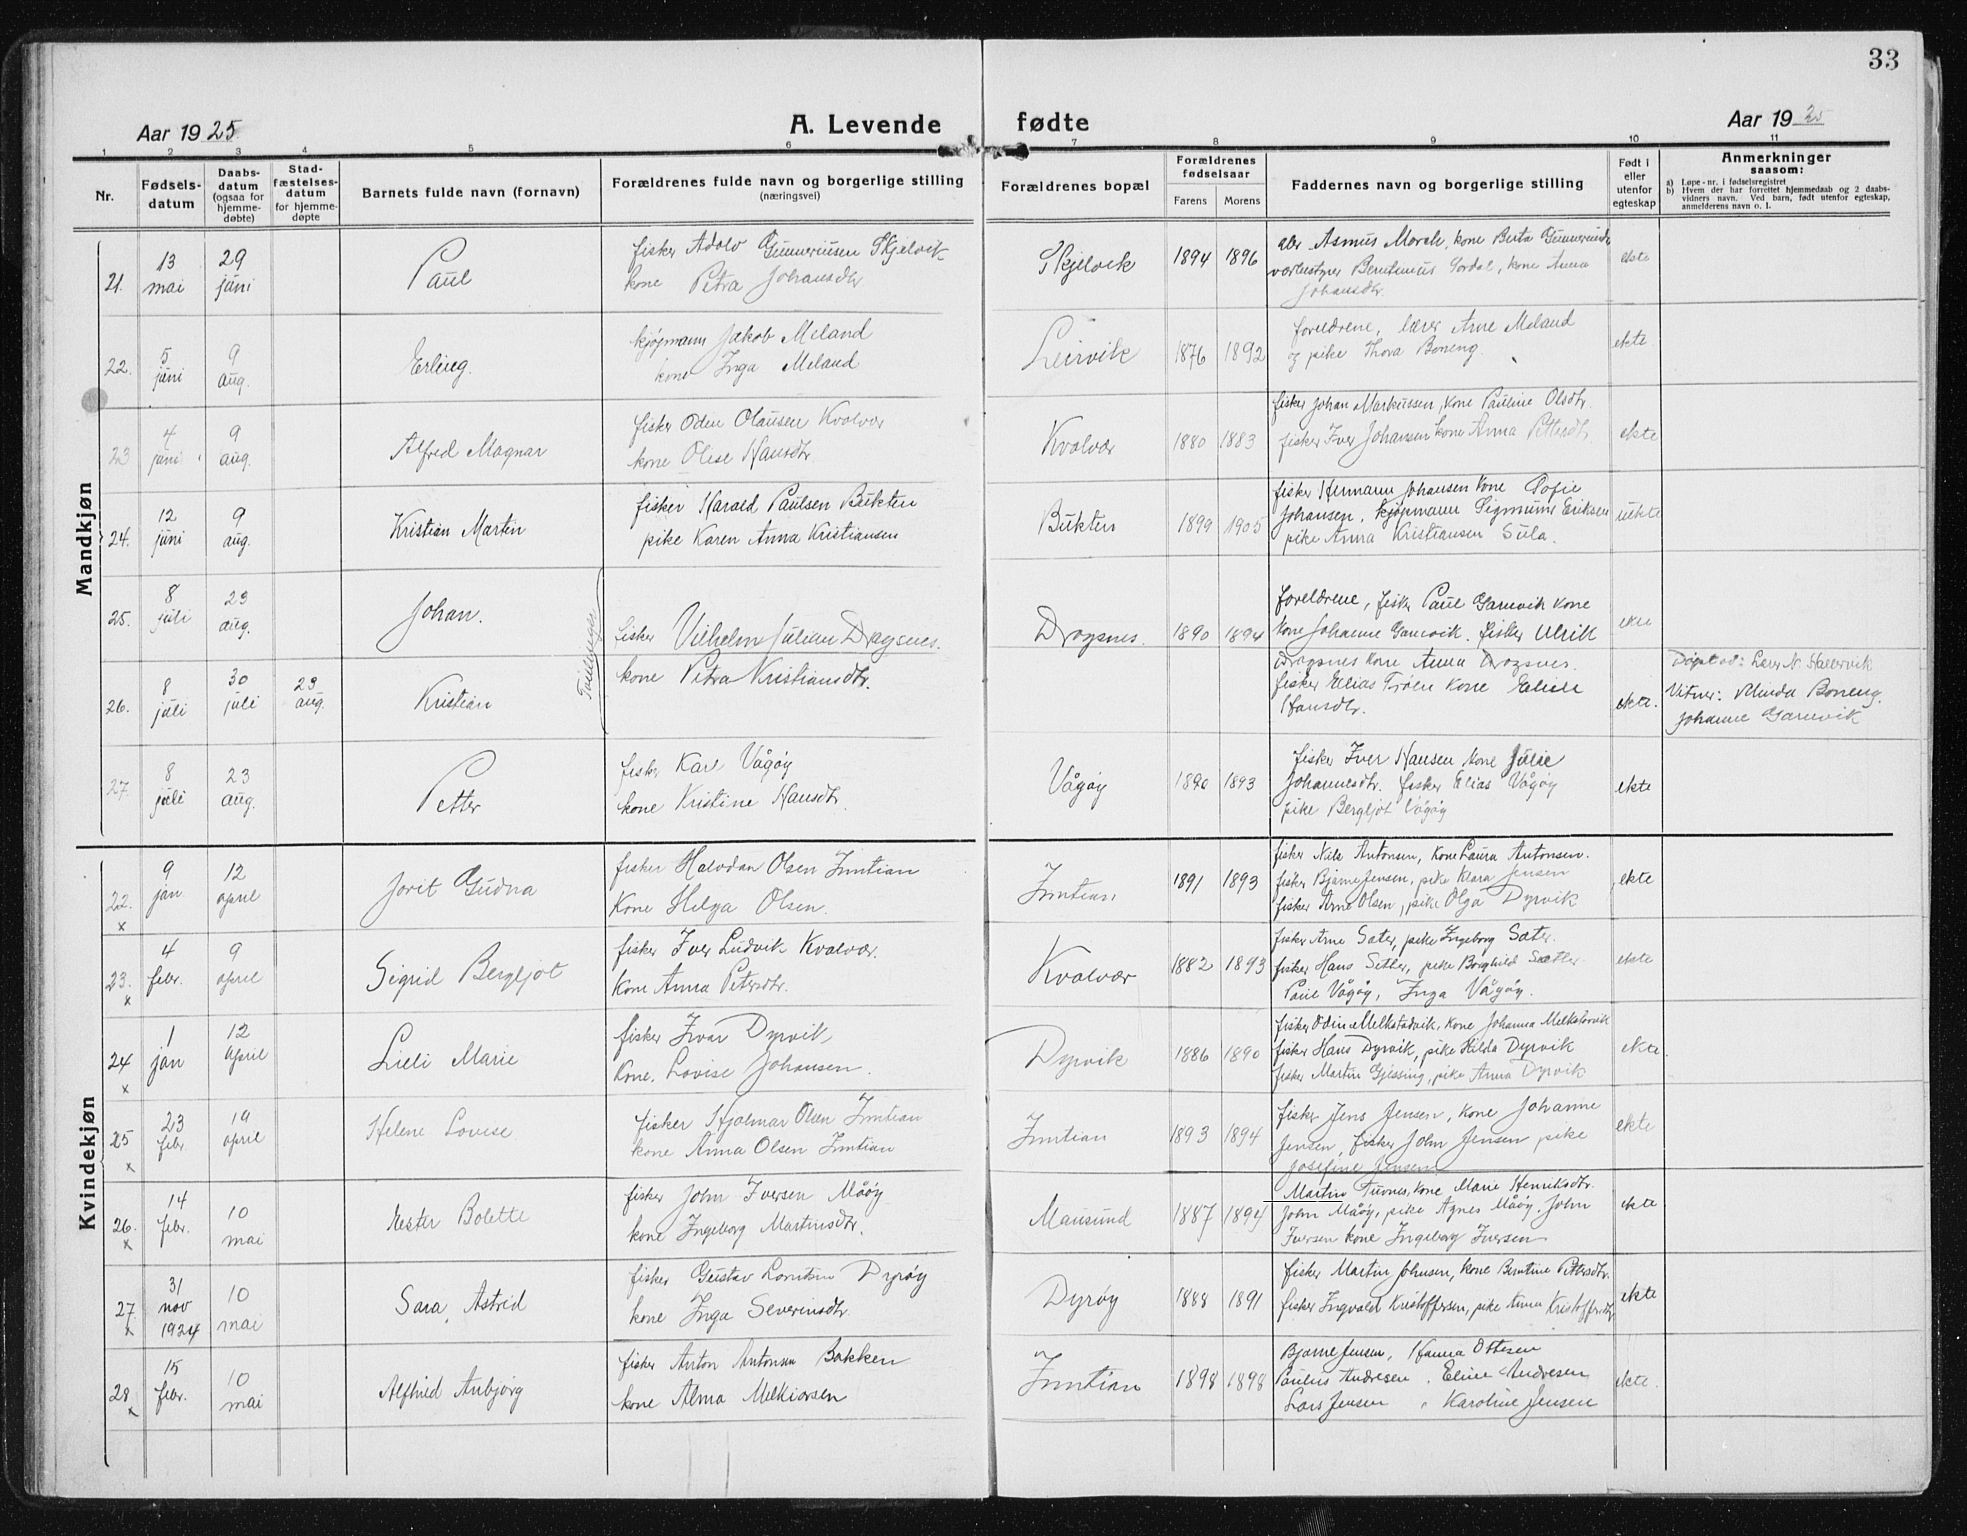 33
Aar 1925.
A. Levende fødte
Aar 1925
1 2 3 4 5 6 7 8 9 10 11
Nr.
Fødsels-
datum
Daabs-
datum
(ogsaa for
hjemme-
døbte)
Stad-
fæstelses-
datum
for hjemme-
døpte
Barnets fulde navn (fornavn)
Forældrenes fulde navn og borgerlige stilling
(næringsvei)
Forældrenes bopæl
Forældrenes
fødselsaar
Farens Morens
Faddernes navn og borgerlige stilling
Født i
eller
utenfor
egteskap
Anmerkninger
saasom:
a) Løpe-nr. i fødselsregistret
b) Hvem der har forrettet hjemmedaab og 2 daabs-
vidners navn. Ved barn, født utenfor egteskap,
anmelderens navn o. l.
Mandkjøn
21. 13 mai 29 juni Paul
fisker Adolv Gunneriusen Skjelvik
kone Petra Johansdtr
Skjelvik 1894 1896
Asmus Morch, kone Berta
Berntinius Gordal, kone Anna
Johansdtr.
ekte
22. 5 juni 9 aug. Erling.
kjøpmann Jakob Meland
kone Inga Meland
Leirvik 1876 1892
foreldrene, lærer Arne Meland
og pike Thora Boneng.
ekte
23 4 juni 9 aug. Alfred Magnar
fisker Oden Olausen Kvalvær
kone Olise Hansdtr
Kvalvær 1880 1883
fisker Johan Markussen, kone Pauline Olsdtr.
fisker Iver Johansen kone Anna Pettersdtr.
ekte
24. 12 juni 9 aug. Kristian Martin
fisker Harald Paulsen Bukten
pike Karen Anna Kristiansen
Bukten 1899 1905
fisker Hermann Johansen kone Sofie
Johansen, kjøpmann Sigmund Eriksen
pike Anna Kristiansen Sula.
uekte
25. 8 juli 23 aug. Johan.
fisker Vilhelm Julian Dragsnes.
Dragsnes. 1890 1894
foreldrene, fisker Paul Garnvik kone
kone Johanne Garnvik. fisker Ulrik
ekte
26. 8 juli 30 juli 23 aug. Kristian
kone Petra Kristiansdtr.
Dragsnes kone Anna Dragsnes.
fisker Elias Trøen kone Elise
Hansdtr.
ekte.
Døpt av: Lærer N. Hallervik
Vitner: Minda Boneng.
Johanne Garnvik
27. 8 juli 23 aug. Petter
fisker Karl Vågøy
kone Kristine Hansdtr.
Vågøy 1890 1893
fisker Iver Hansen kone Julie
Johannesdtr. fisker Elias Vågøy
pike Bergljot Vågøy
ekte
Kvindekjøn
22. x 9 jan 12 april Jorit Gudna
fisker Halvdan Olsen Inntian
Kone Helga Olsen.
Inntian 1891 1893
fisker Nils Antonsen, kone Laura Antonsen.
fisker Bjarne Jensen, pike Klara Jensen
fisker Arne Olsen, pike Olga Dyrvik
ekte
23. x 4 febr. 9 april Sigrid Bergljot
fisker Iver Ludvik Kvalvær.
Kone Anna Petersdtr.
Kvalvær 1882 1893
fisker Arne Sæter, pike Ingeborg Sæter.
fisker Hans Setler, pike Borghild Sætler
Paul Vågøy, Inga Vågøy.
ekte
24 x 1 jan 12 april Lilli Marie
fisker Ivar Dyrvik
Kone. Lovise Johansen.
Dyrvik 1886 1890
fisker Odin Melkstadvik, kone Johanna Melkstavik
fisker Hans Dyrvik, pike Hilda Dyrvik
fisker Martin Gjessing, pike Anna Dyrvik
ekte.
25 x 23 febr 19 april Helene Lovise
fisker Hjalmar Olsen Inntian
kone Anna Olsen Inntian
Inntian 1893 1894
fisker Jens Jensen, kone Johanne
Jensen, fisker John Jensen pike
Josefine Jensen
ekte
26. x 14 febr. 10 mai Nester Bolette
fisker John Iversen Måøy
kone Ingeborg Martinsdtr.
Mausund 1887 1894
Martin Tuvnes, kone Marie Henriksdtr.
John Måøy, pike Agnes Måøy. John
Iversen kone Ingeborg Iversen
ekte
27 x 31 nov 1924 10 mai Sara Astrid
fisker Gustav Lorntsen Dyrøy
kone Inga Severinsdtr.
Dyrøy 1888 1891
fisker Martin Johnsen, kone Berntine Pettersdtr.
fisker Ingvald Kristoffersen, pike Anna Kristoffersdtr
ekte
28 x 15 febr. 10 mai Alfhild Anbjørg
fisker Anton Antonsen Bakken
kone Alma Melkiorsen
Inntian 1898 1898
Bjarne Jensen, Hanna Ottesen
Paulus Andresen. Eline Andresen
Lars Jensen, Karoline Jensen
ekte.